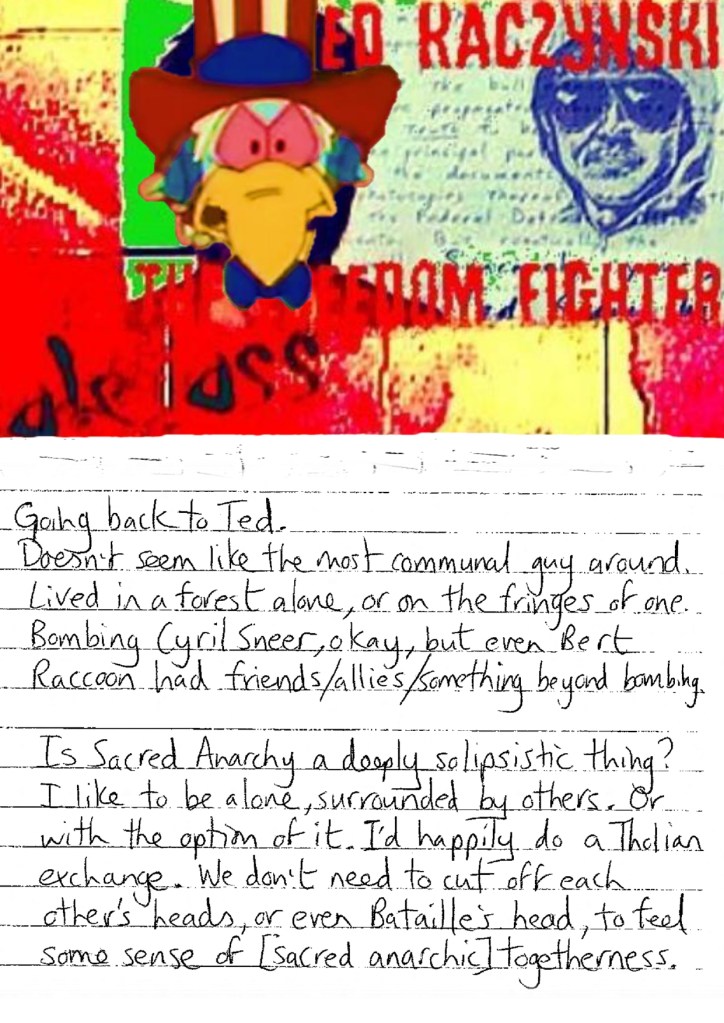 ED KACZYNSKI
The bull
propaga
Truth to b
principal pu
the documents
photocopies Thereof
the Federal Data
the
THE FREEDOM FIGHTER
ss
Going back to Ted.
Doesn't seem like the most communal guy around.
Lived in a forest alone, or on the fringes of one.
Bombing Cyril Sneer, okay, but even Bert
Raccoon had friends/allies/something beyond bombing.
Is Sacred Anarchy a deeply solipsistic thing?
I like to be alone, surrounded by others. Or
with the option of it. I'd happily do a Tholian
exchange. We don't need to cut off each
other's heads, or even Bataille's head, to feel
some sense of [sacred anarchic] togetherness.